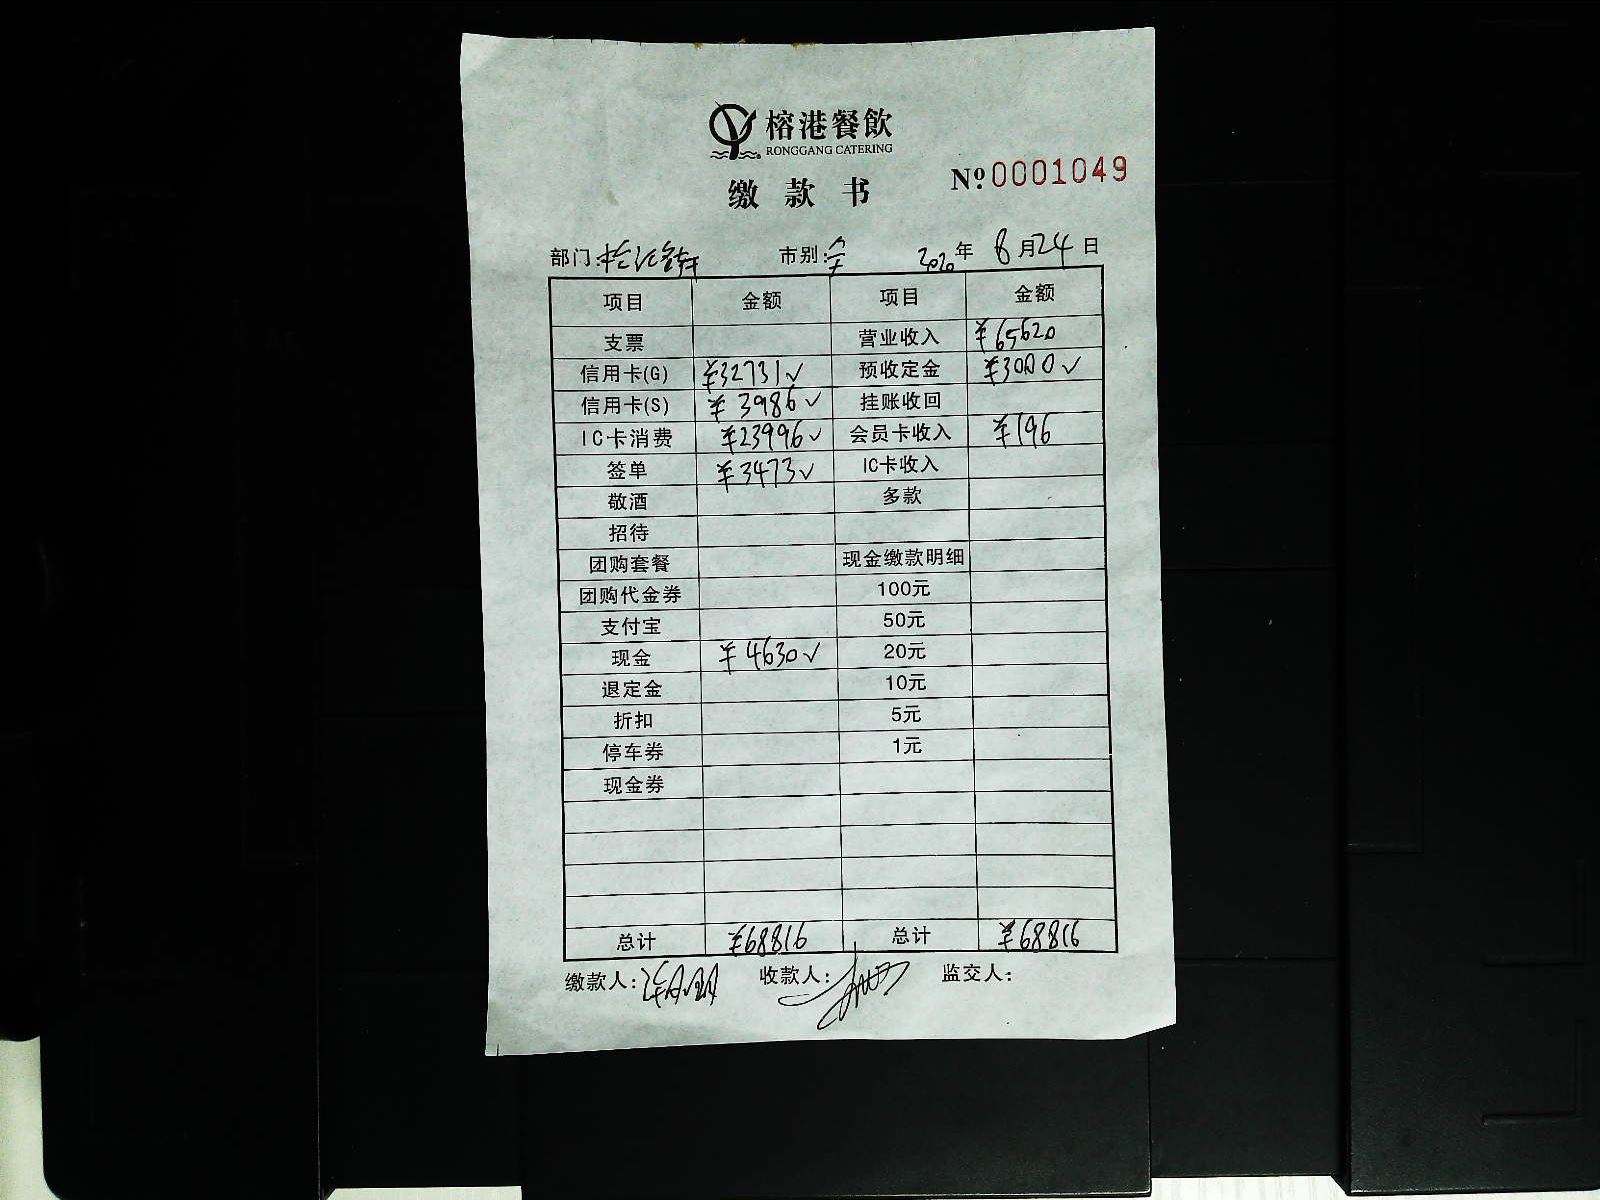 榕港餐飲
RONGGANG CATERING
缴款书
Nº 0001049
部门: 市别:全 2020年 8月24日
项目 金额 项目 金额
支票 营业收入 ¥65620
信用卡(G) ¥32731✓ 预收定金 ¥3000✓
信用卡(S) ¥3986✓ 挂账收回
IC卡消费 ¥23996✓ 会员卡收入 ¥196
签单 ¥3473✓ IC卡收入
敬酒 多款
招待
团购套餐 现金缴款明细
团购代金券 100元
支付宝 50元
现金 ¥4630✓ 20元
退定金 10元
折扣 5元
停车券 1元
现金券
总计 ¥68816 总计 ¥68816
缴款人: 收款人: 监交人: